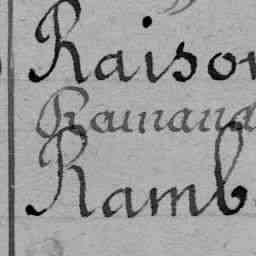 Raison
Ramana
Ramb